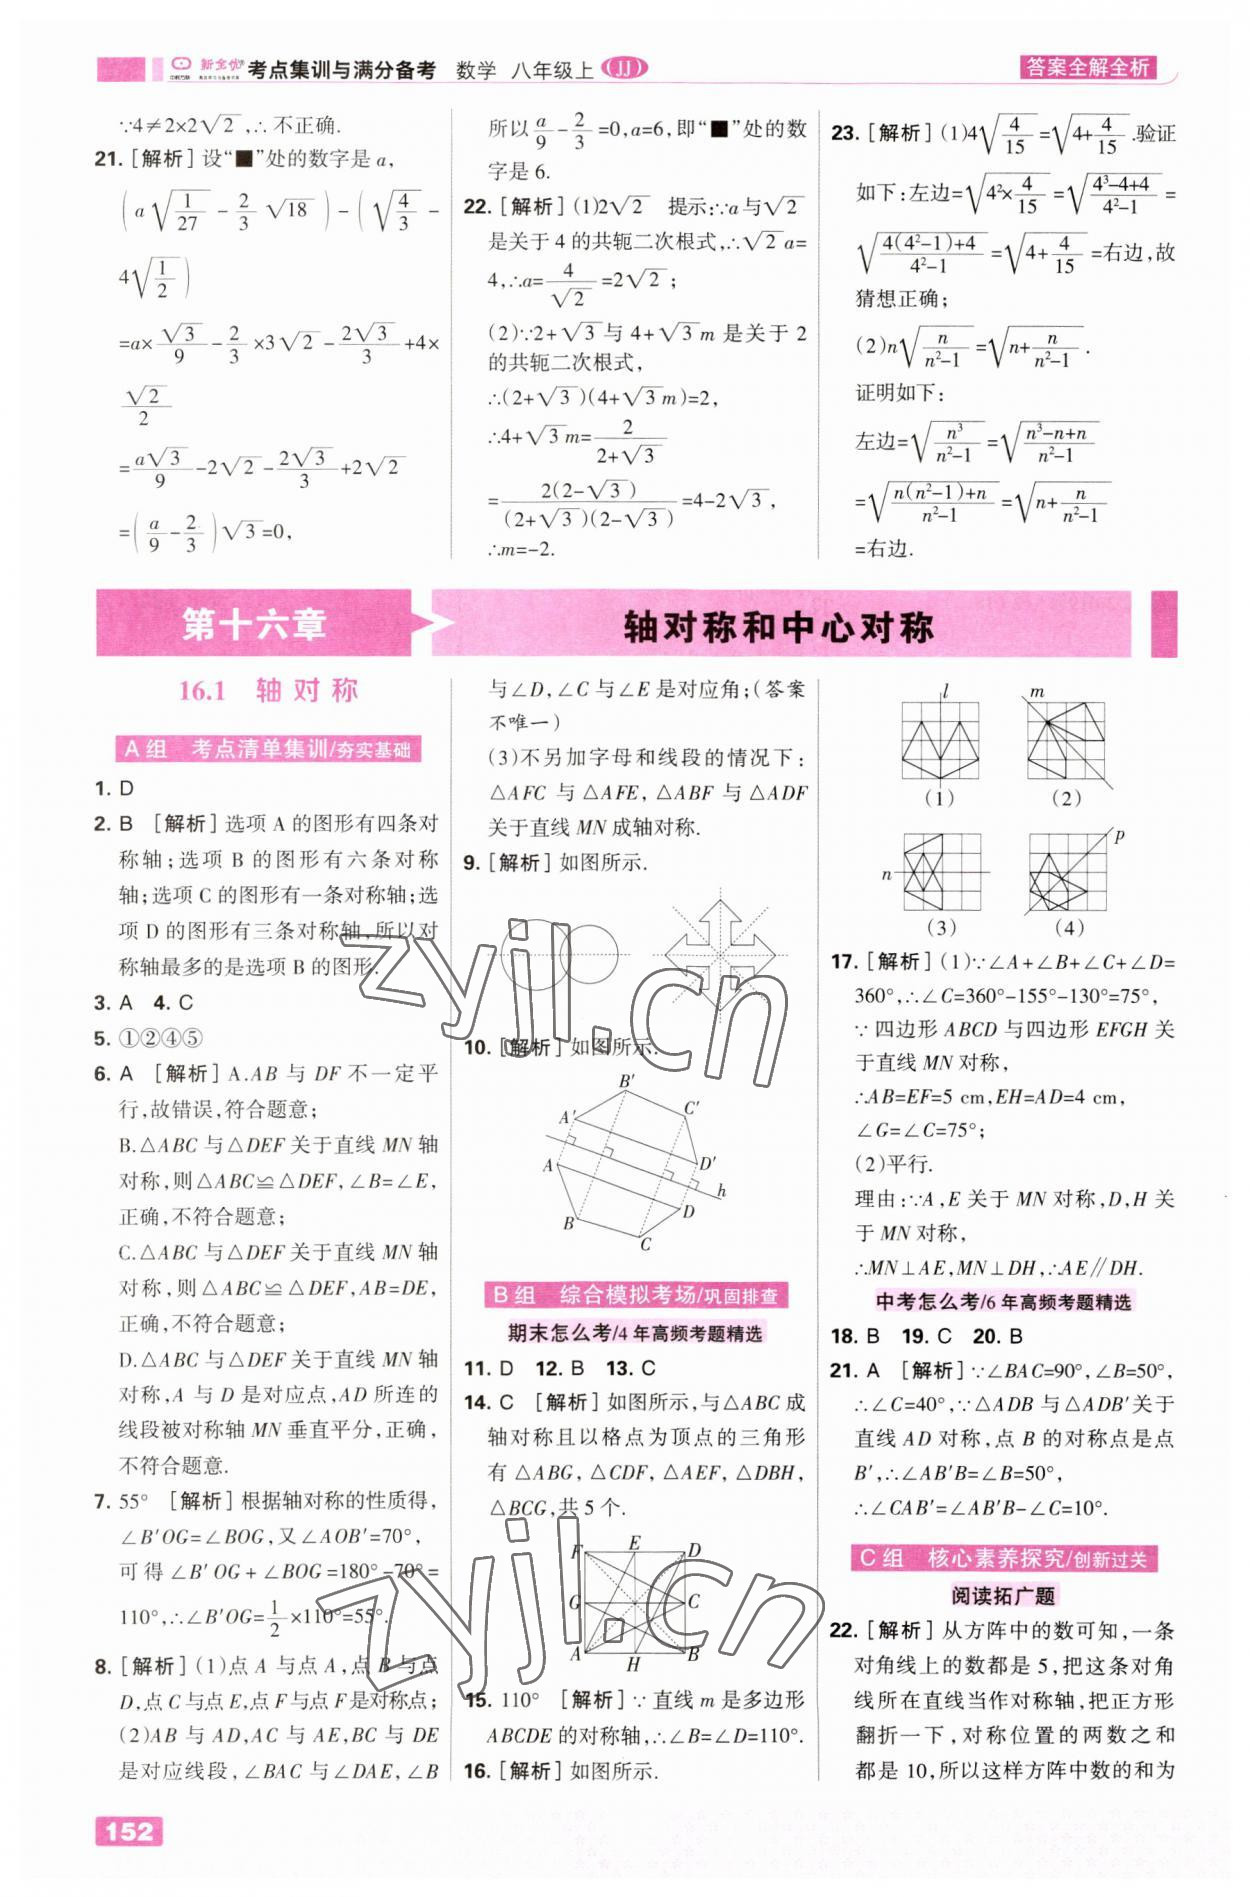 新全优® 考点集训与满分备考 数学 八年级上 (JJ)
答案全解全析
∵4≠2×2√2,∴不正确.
21. [解析] 设“■”处的数字是 a,
(a√(1/27) - 2/3 √18) - (√(4/3) -
4√(1/2))
=a×√3/9-2/3×3√2-2√3/3+4×
√2/2
=a√3/9-2√2-2√3/3+2√2
=(a/9-2/3)√3=0,
所以a/9-2/3=0,a=6,即“■”处的数
字是 6.
22. [解析] (1)2√2 提示:∵a与√2
是关于 4 的共轭二次根式,∴√2a=
4,∴a=4/√2=2√2;
(2)∵2+√3与 4+√3m 是关于 2
的共轭二次根式,
∴(2+√3)(4+√3m)=2,
∴4+√3m=2/(2+√3)
=2(2-√3)/((2+√3)(2-√3))=4-2√3,
∴m=-2.
23. [解析] (1)4√(4/15)=√(4+4/15).验证
如下:左边=√(4²×4/15)=√((4³-4+4)/(4²-1))=
√((4(4²-1)+4)/(4²-1))=√(4+4/15)=右边,故
猜想正确;
(2)n√(n/(n²-1))=√(n+n/(n²-1)).
证明如下:
左边=√(n³/(n²-1))=√((n³-n+n)/(n²-1))
=√((n(n²-1)+n)/(n²-1))=√(n+n/(n²-1))
=右边.
第十六章 轴对称和中心对称
16.1 轴对称
A 组 考点清单集训/夯实基础
1. D
2. B [解析] 选项 A 的图形有四条对
称轴;选项 B 的图形有六条对称
轴;选项 C 的图形有一条对称轴;选
项 D 的图形有三条对称轴,所以对
称轴最多的是选项 B 的图形.
3. A 4. C
5. ①②④⑤
6. A [解析] A.AB 与 DF 不一定平
行,故错误,符合题意;
B.△ABC 与△DEF 关于直线 MN 轴
对称,则△ABC≌△DEF,∠B=∠E,
正确,不符合题意;
C.△ABC 与△DEF 关于直线 MN 轴
对称,则△ABC≌△DEF,AB=DE,
正确,不符合题意;
D.△ABC 与△DEF 关于直线 MN 轴
对称,A 与 D 是对应点,AD 所连的
线段被对称轴 MN 垂直平分,正确,
不符合题意.
7. 55° [解析] 根据轴对称的性质得,
∠B′OG=∠BOG,又∠AOB′=70°,
可得∠B′OG+∠BOG=180°-70°=
110°,∴∠B′OG=1/2×110°=55°.
8. [解析] (1)点 A 与点 A,点 B 与点
D,点 C 与点 E,点 F 与点 F 是对称点;
(2)AB 与 AD,AC 与 AE,BC 与 DE
是对应线段,∠BAC 与∠DAE,∠B
与∠D,∠C 与∠E 是对应角;(答案
不唯一)
(3)不另加字母和线段的情况下:
△AFC 与△AFE,△ABF 与△ADF
关于直线 MN 成轴对称.
9. [解析] 如图所示.
10. [解析] 如图所示.
B′
A′ C′
D′
A
h
D
B
C
B 组 综合模拟考场/巩固排查
期末怎么考/4 年高频考题精选
11. D 12. B 13. C
14. C [解析] 如图所示,与△ABC 成
轴对称且以格点为顶点的三角形
有△ABG,△CDF,△AEF,△DBH,
△BCG,共 5 个.
F E D
G C
A H B
15. 110° [解析] ∵直线 m 是多边形
ABCDE 的对称轴,∴∠B=∠D=110°.
16. [解析] 如图所示.
l m
(1) (2)
n p
(3) (4)
17. [解析] (1)∵∠A+∠B+∠C+∠D=
360°,∴∠C=360°-155°-130°=75°,
∵四边形 ABCD 与四边形 EFGH 关
于直线 MN 对称,
∴AB=EF=5 cm,EH=AD=4 cm,
∠G=∠C=75°;
(2)平行.
理由:∵A,E 关于 MN 对称,D,H 关
于 MN 对称,
∴MN⊥AE,MN⊥DH,∴AE∥DH.
中考怎么考/6 年高频考题精选
18. B 19. C 20. B
21. A [解析] ∵∠BAC=90°,∠B=50°,
∴∠C=40°,∵△ADB 与△ADB′关于
直线 AD 对称,点 B 的对称点是点
B′,∴∠AB′B=∠B=50°,
∴∠CAB′=∠AB′B-∠C=10°.
C 组 核心素养探究/创新过关
阅读拓广题
22. [解析] 从方阵中的数可知,一条
对角线上的数都是 5,把这条对角
线所在直线当作对称轴,把正方形
翻折一下,对称位置的两数之和
都是 10,所以这样方阵中数的和为
152
zyjl.cn
zyjl.cn